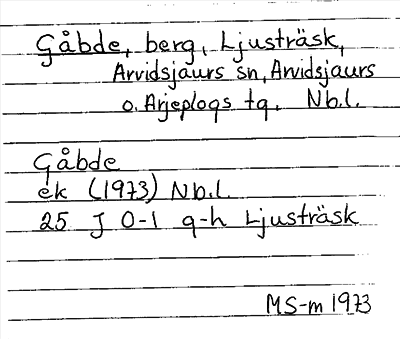 Gåbde, berg, Ljusträsk,
Arvidsjaurs sn, Arvidsjaurs
o. Arjeplogs tg. Nb.l.
Gåbde
ek (1973) Nb.l.
25 J 0-1 g-h Ljusträsk
MS-m 1973